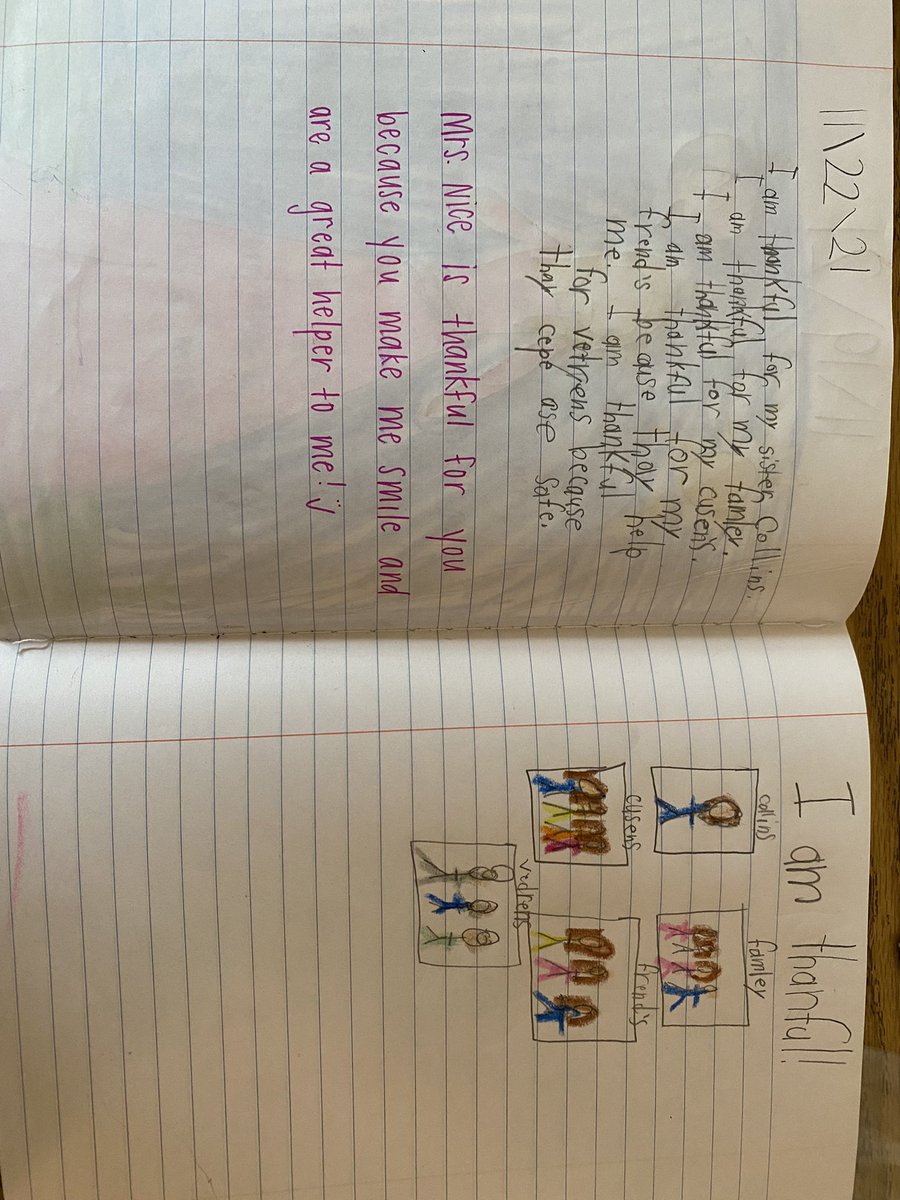 11\22\21
I am thankful for my sister Collins.
I am thankful for my famley.
I I am thankful for my cusens.
I am thankful for my
frend's because thay help
me. I am thankful
for vetrens because
thay cepe ase safe.
Mrs. Nice is thankful for you
because you make me smile and
are a great helper to me!
I am thanful!
collins
famley
cusens
frend's
vedrens